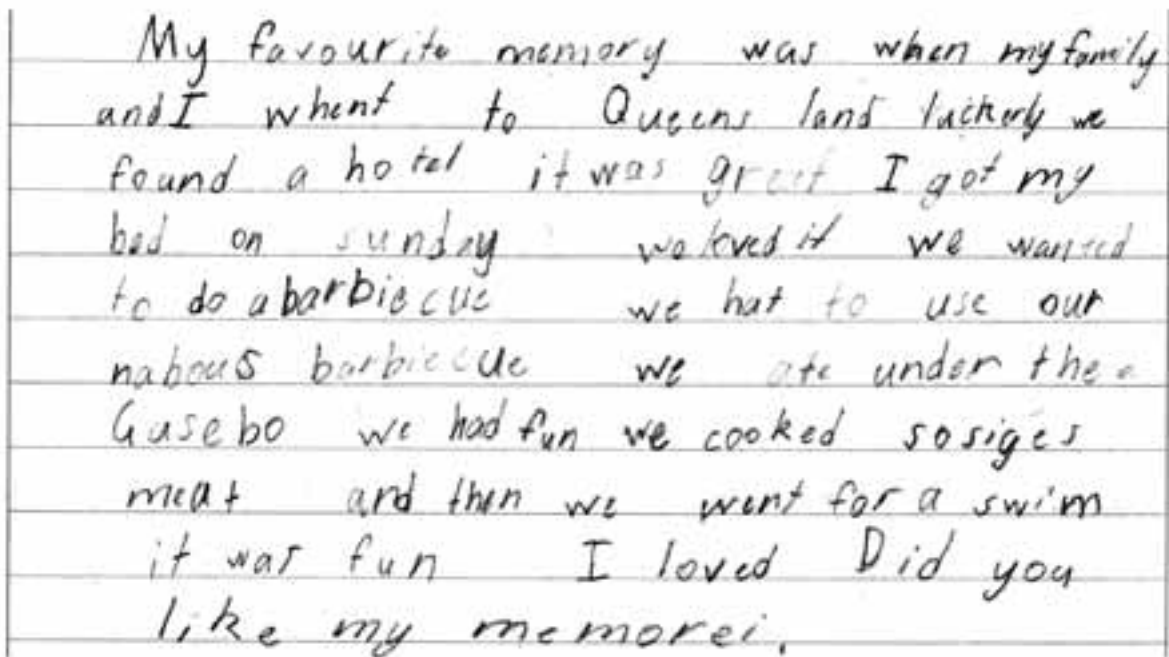 My favourite memory was when my family
and I whent to Queens land luckerly we
found a hotel it was great I got my
bed on sunday we loved it we wanted
to do a barbiecue we hat to use our
nabous barbiecue we ate under the
Gasebo we had fun we cooked sosiges
meat and then we went for a swim
it was fun I loved Did you
like my memorei.